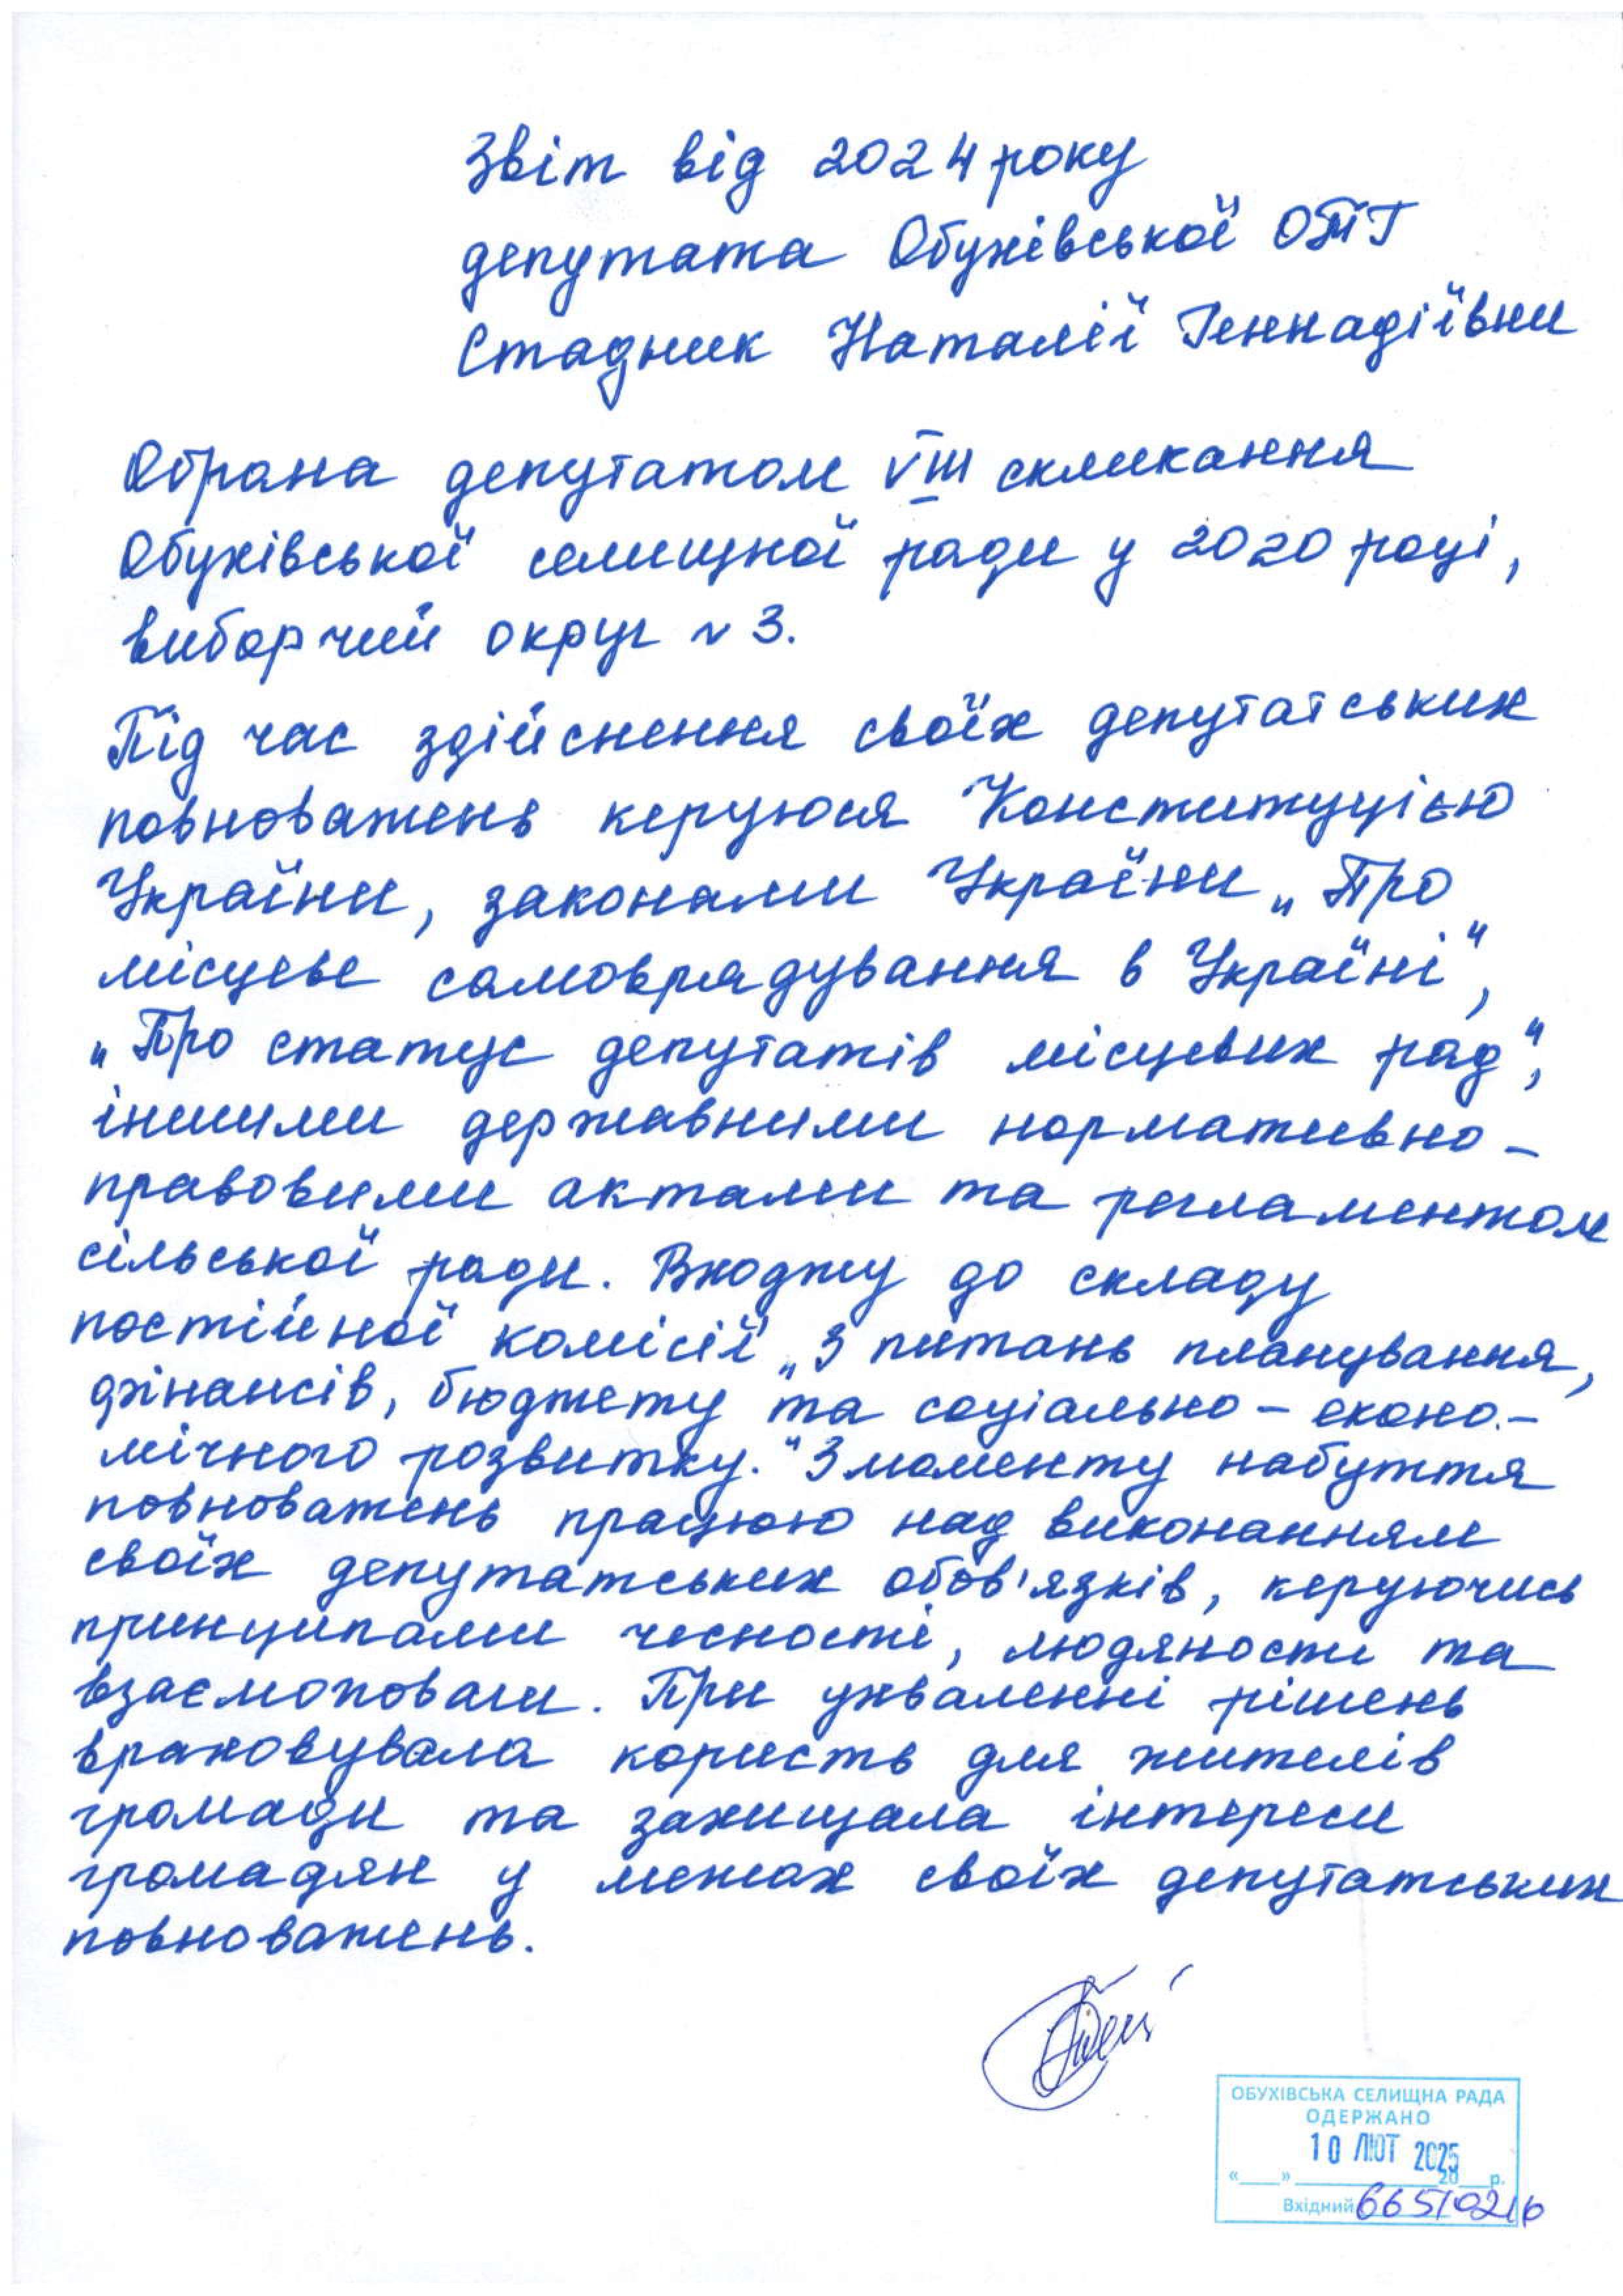 Звіт від 2024 року
депутата Обухівської ОТГ
Стадник Наталії Геннадіївни
Обрана депутатом VIII скликання
Обухівської селищної ради у 2020 році,
виборчий округ № 3.
Під час здійснення своїх депутатських
повноважень керуюся Конституцією
України, законами України „Про
місцеве самоврядування в Україні",
„Про статус депутатів місцевих рад",
іншими державними нормативно-
правовими актами та регламентом
сільської ради. Входжу до складу
постійної комісії „З питань планування,
фінансів, бюджету та соціально-еконо-
мічного розвитку." З моменту набуття
повноважень працюю над виконанням
своїх депутатських обов'язків, керуючись
принципами чесності, людяности та
взаємоповаги. При ухваленні рішень
враховувала користь для жителів
громади та захищала інтереси
громадян у межах своїх депутатських
повноважень.
ОБУХІВСЬКА СЕЛИЩНА РАДА
ОДЕРЖАНО
10 ЛЮТ 2025
«___» ____________ 20__р.
Вхідний 665/02/6